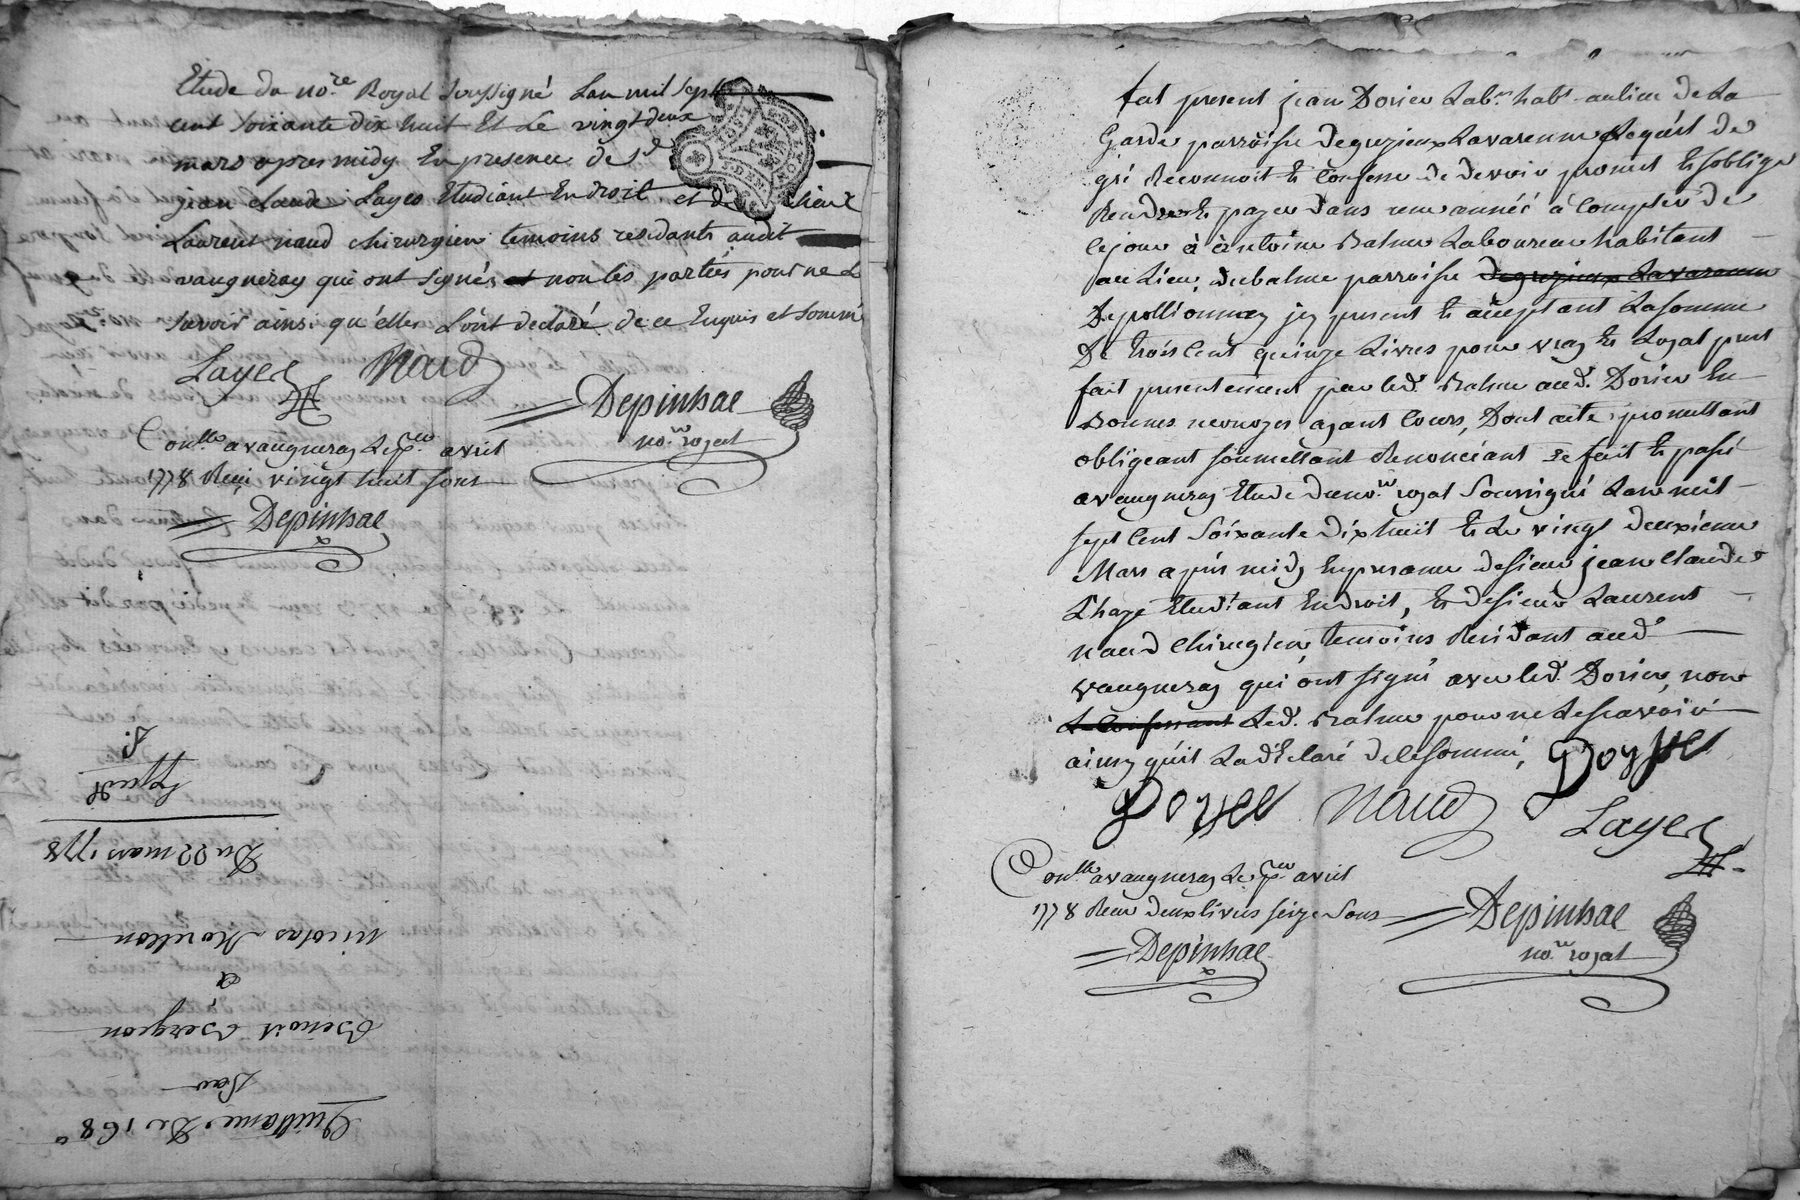 Etude du no.re Royal soussigné L'an mil sept
cent soixante dix huit Et Le vingt deux
mars apres midy En presence de s.r
jean claude Layes Etudiant En droit et de sieur
Laurent naud chirurgien temoins residants audit
vaugneray qui ont signés non les parties pour ne Le
savoir ainsi qu'elles L'ont declaré de ce Enquis et sommé
Layes Naud
Depinhac
no.re royal
Con.lle a vaugneray Le p.er avril
1778 Reçu vingt huit sous
Depinhac
Quittance De 168
Par
Benoit Bergeon
a
nicolas Moullon
Du 22 mars 1778
Expedié
fut present jean Dorier Lab.r hab.t au lieu de La
Garde parroisse de grezieux Lavarenne Lequel de
gré Reconnoit Et Confesse de devoir promet Et s'oblige
Rendre Et payer dans une année à Compter de
ce jour à antoine Balme Laboureur habitant
au Lieu de balme parroisse de grezieux Lavarenne
De pollionnay jcy present Et acceptant La somme
De trois Cent quinze Livres pour vray Et Loyal prest
fait presentement par led. Balme aud. Dorier En
Bonnes monoyes ayant Cours, Dont acte promettant
obligeant soumettant Renonciant &c fait Et passé
a vaugneray Etude du no.re royal Soussigné L'an mil
sept Cent Soixante Dix huit Et Le vingt deuxieme
Mars après midy En presance de sieur jean Claude
Lhaye Etudiant En droit, Et de sieur Laurent
naud Chirurgien temoins Residant aud.
vaugneray qui ont signé avec led. Dorier, non
Led. Balme pour ne Le scavoir
ainsy qu'il La déclaré de Ce sommé,
Doyse
Doyse Naud Layes
Con.lle a vaugneray Le p.er avril
1778 Reçu deux livres seize sous
Depinhac
no.re royal
Depinhac